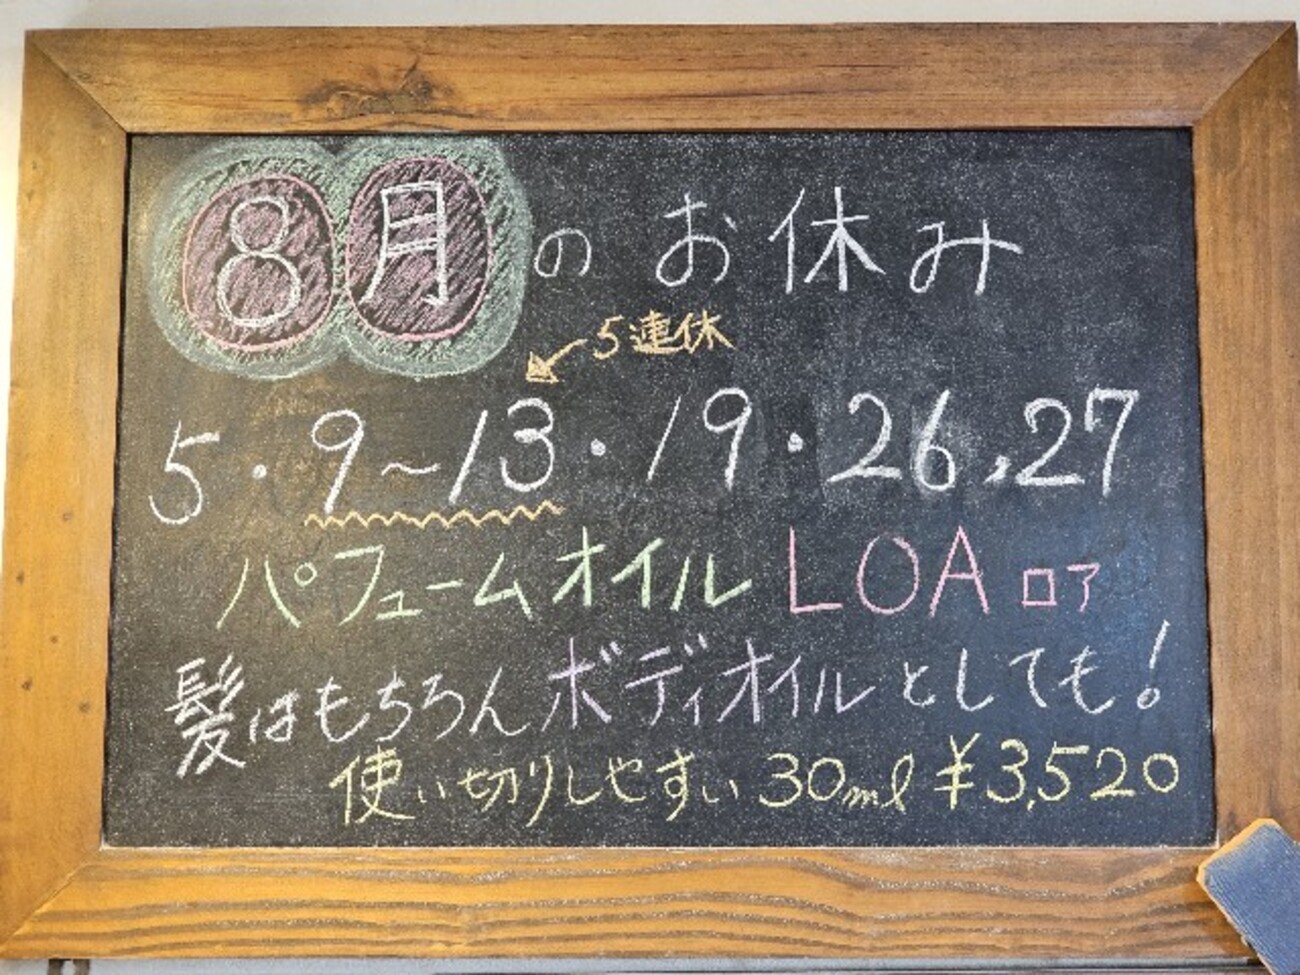 8月のお休み
5連休
5・9~13・19・26,27
パフュームオイル LOA ロア
髪はもちろんボディオイルとしても!
使い切りしやすい 30ml ¥3,520